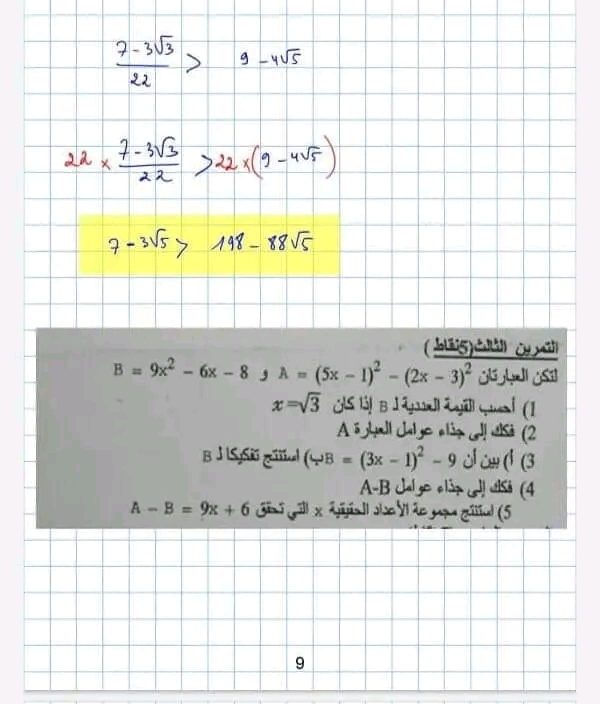 7 - 3√3 / 22 > 9 - 4√5
22 × 7 - 3√3 / 22 > 22 × (9 - 4√5)
7 - 3√5 > 198 - 88√5
التمرين الثالث(5نقاط)
لتكن العبارتان A = (5x − 1)² − (2x − 3)² و B = 9x² − 6x − 8
1) أحسب القيمة العددية لـ B إذا كان x=√3
2) فكك إلى جذاء عوامل العبارة A
3) أ) بين أن B = (3x − 1)² − 9 ب) استنتج تفكيكا لـ B
4) فكك إلى جذاء عوامل A-B
5) استنتج مجموعة الأعداد الحقيقية x التي تحقق A − B = 9x + 6
9